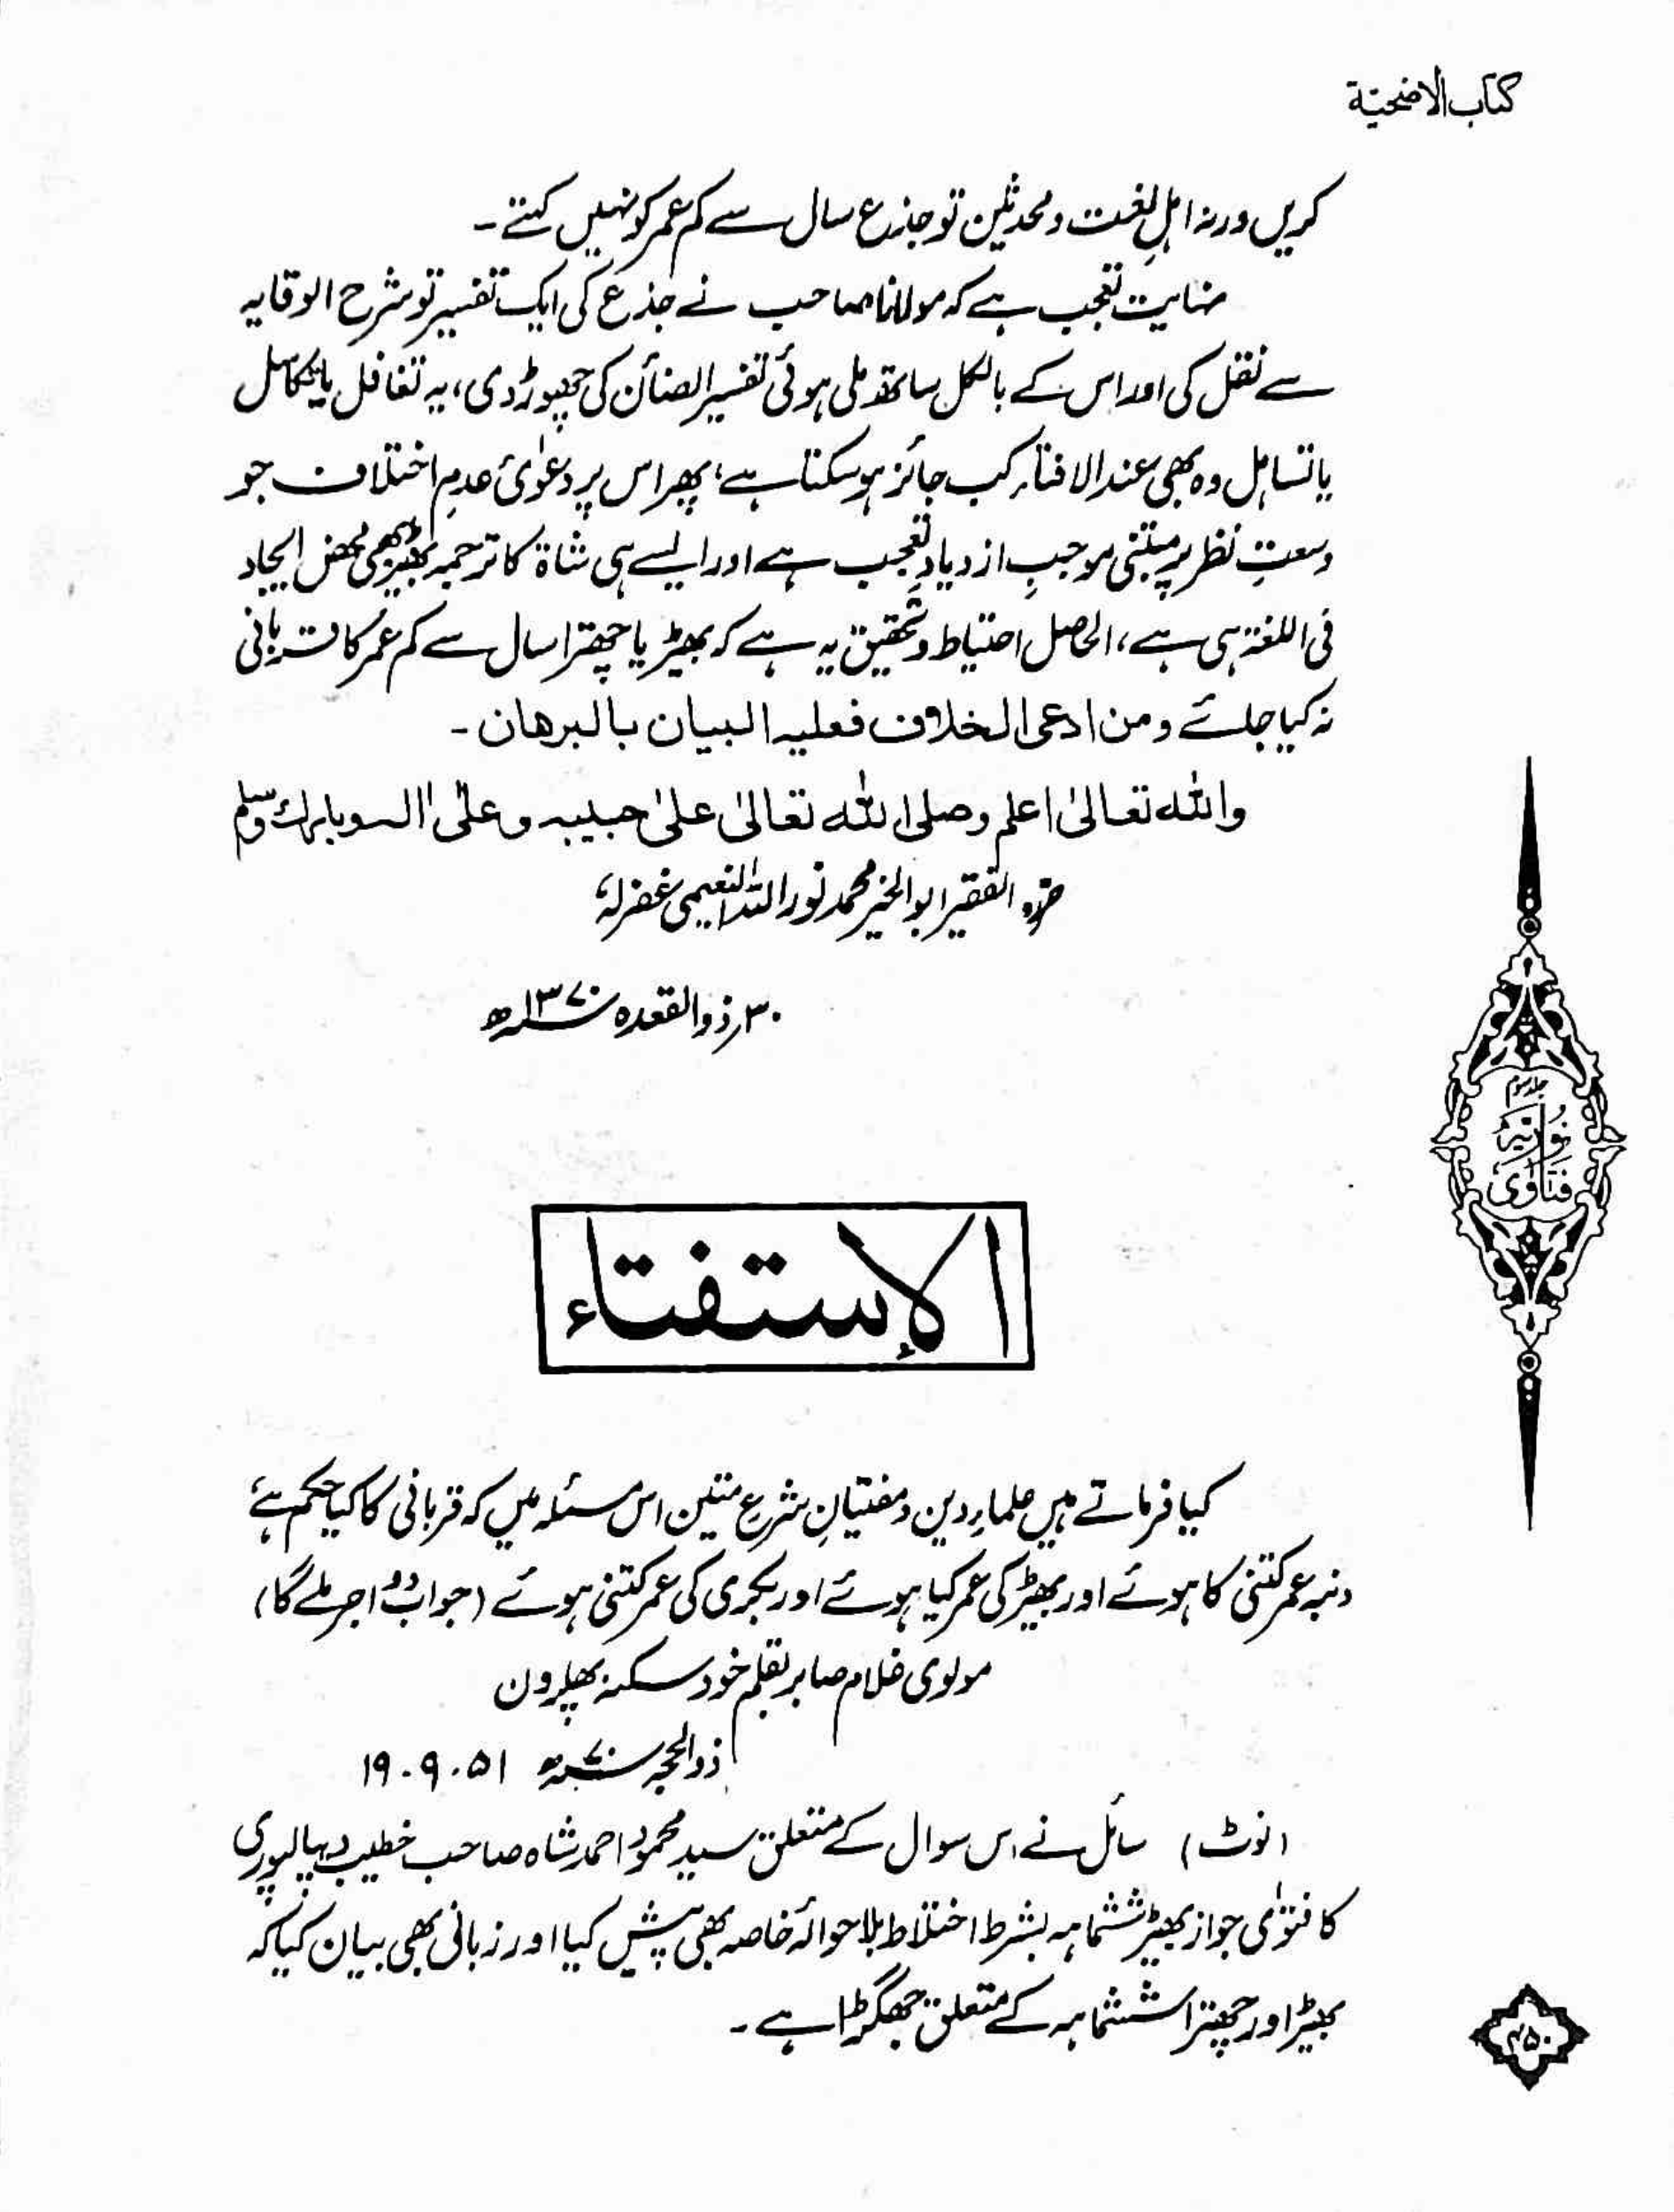 کتاب الاضحیۃ
کریں ورنہ اہلِ لغت ومحدثین تو جذع سال سے کم عمر کو نہیں کہتے۔
نہایت تعجب ہے کہ مولانا صاحب نے جذع کی ایک تفسیر تو شرح الوقایہ
سے نقل کی اور اس کے بالکل ساتھ ملی ہوئی تفسیر الضأن کی چھوڑ دی، یہ تغافل یا تکاسل
یا تساہل وہ بھی عند الافتاء کب جائز ہو سکتا ہے، پھر اس پر دعوٰئ عدمِ اختلاف جو
وسعتِ نظر پر مبتنی موجبِ ازدیادِ تعجب ہے اور ایسے ہی شاۃ کا ترجمہ بھیڑ بھی محض ایجاد
فی اللغۃ ہی ہے، الحاصل احتیاط وتحقیق یہ ہے کہ بھیڑ یا چھترا سال سے کم عمر کا قربانی
نہ کیا جائے ومن ادعی الخلاف فعلیہ البیان بالبرھان۔
واللہ تعالیٰ اعلم وصلی اللہ تعالیٰ علیٰ حبیبہ وعلیٰ اٰلہ وبارک وسلم
حررہ الفقیر ابوالخیر محمد نور اللہ النعیمی غفرلہٗ
۳۰؍ذوالقعدہ ۱۳۷۰ھ
جلد سوم
نوریہ
فتاوٰی
الإستفتاء
کیا فرماتے ہیں علماءِ دین ومفتیانِ شرعِ متین اس مسئلہ میں کہ قربانی کا کیا حکم ہے
دنبہ عمر کتنی کا ہوئے اور بھیڑ کی عمر کیا ہوئے اور بکری کی عمر کتنی ہوئے (جواب دو اجر ملے گا)
مولوی غلام صابر بقلم خود سکنہ
ذوالحجہ ۷۰ھ ۱۹-۹-۵۱
(نوٹ) سائل نے اس سوال کے متعلق سید محمود احمد شاہ صاحب خطیب دیپالپوری
کا فتوٰی جواز بھیڑ ششماہہ بشرط اختلاط بلاحوالۂ خاصہ بھی پیش کیا اور زبانی بھی بیان کیا کہ
بھیڑ اور چھترا ششماہہ کے متعلق جھگڑا ہے۔
۴۵۰